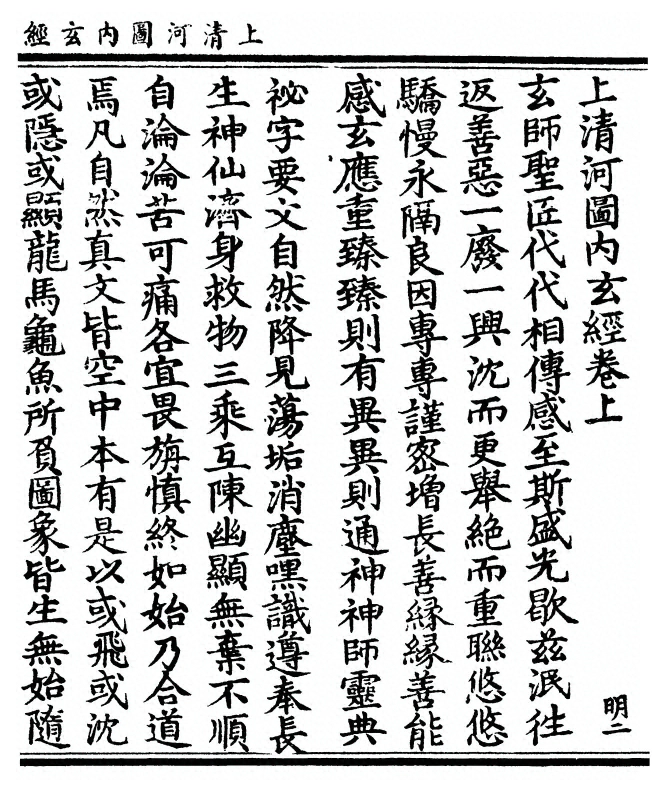 上清河圖内玄經
上清河圖内玄經卷上
明二
玄師聖匠代代相傳感至斯盛光歇兹泯往
返善惡一廢一興沈而更舉絶而重聯悠悠
驕慢永隔良因專專謹密增長善縁縁善能
感玄應重臻臻則有異異則通神神師靈典
祕字要文自然降見蕩垢消塵嘿識遵奉長
生神仙濟身救物三乘互陳幽顯無棄不順
自淪淪苦可痛各宜畏旃慎終如始乃合道
焉凡自然真文皆空中本有是以或飛或沈
或隱或顯龍馬龜魚所負圖象皆生無始隨